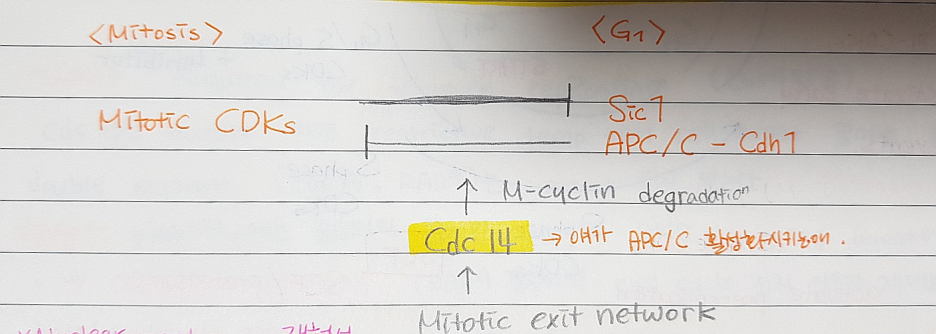 <Mitosis> <G1>
Mitotic CDKs Sic1
APC/C - Cdh1
M-cyclin degradation
Cdc14 → 얘가 APC/C 활성화시키는애.
Mitotic exit network